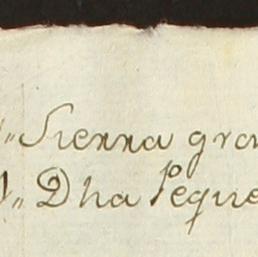 „ Sierra gran
„ Dha Peque